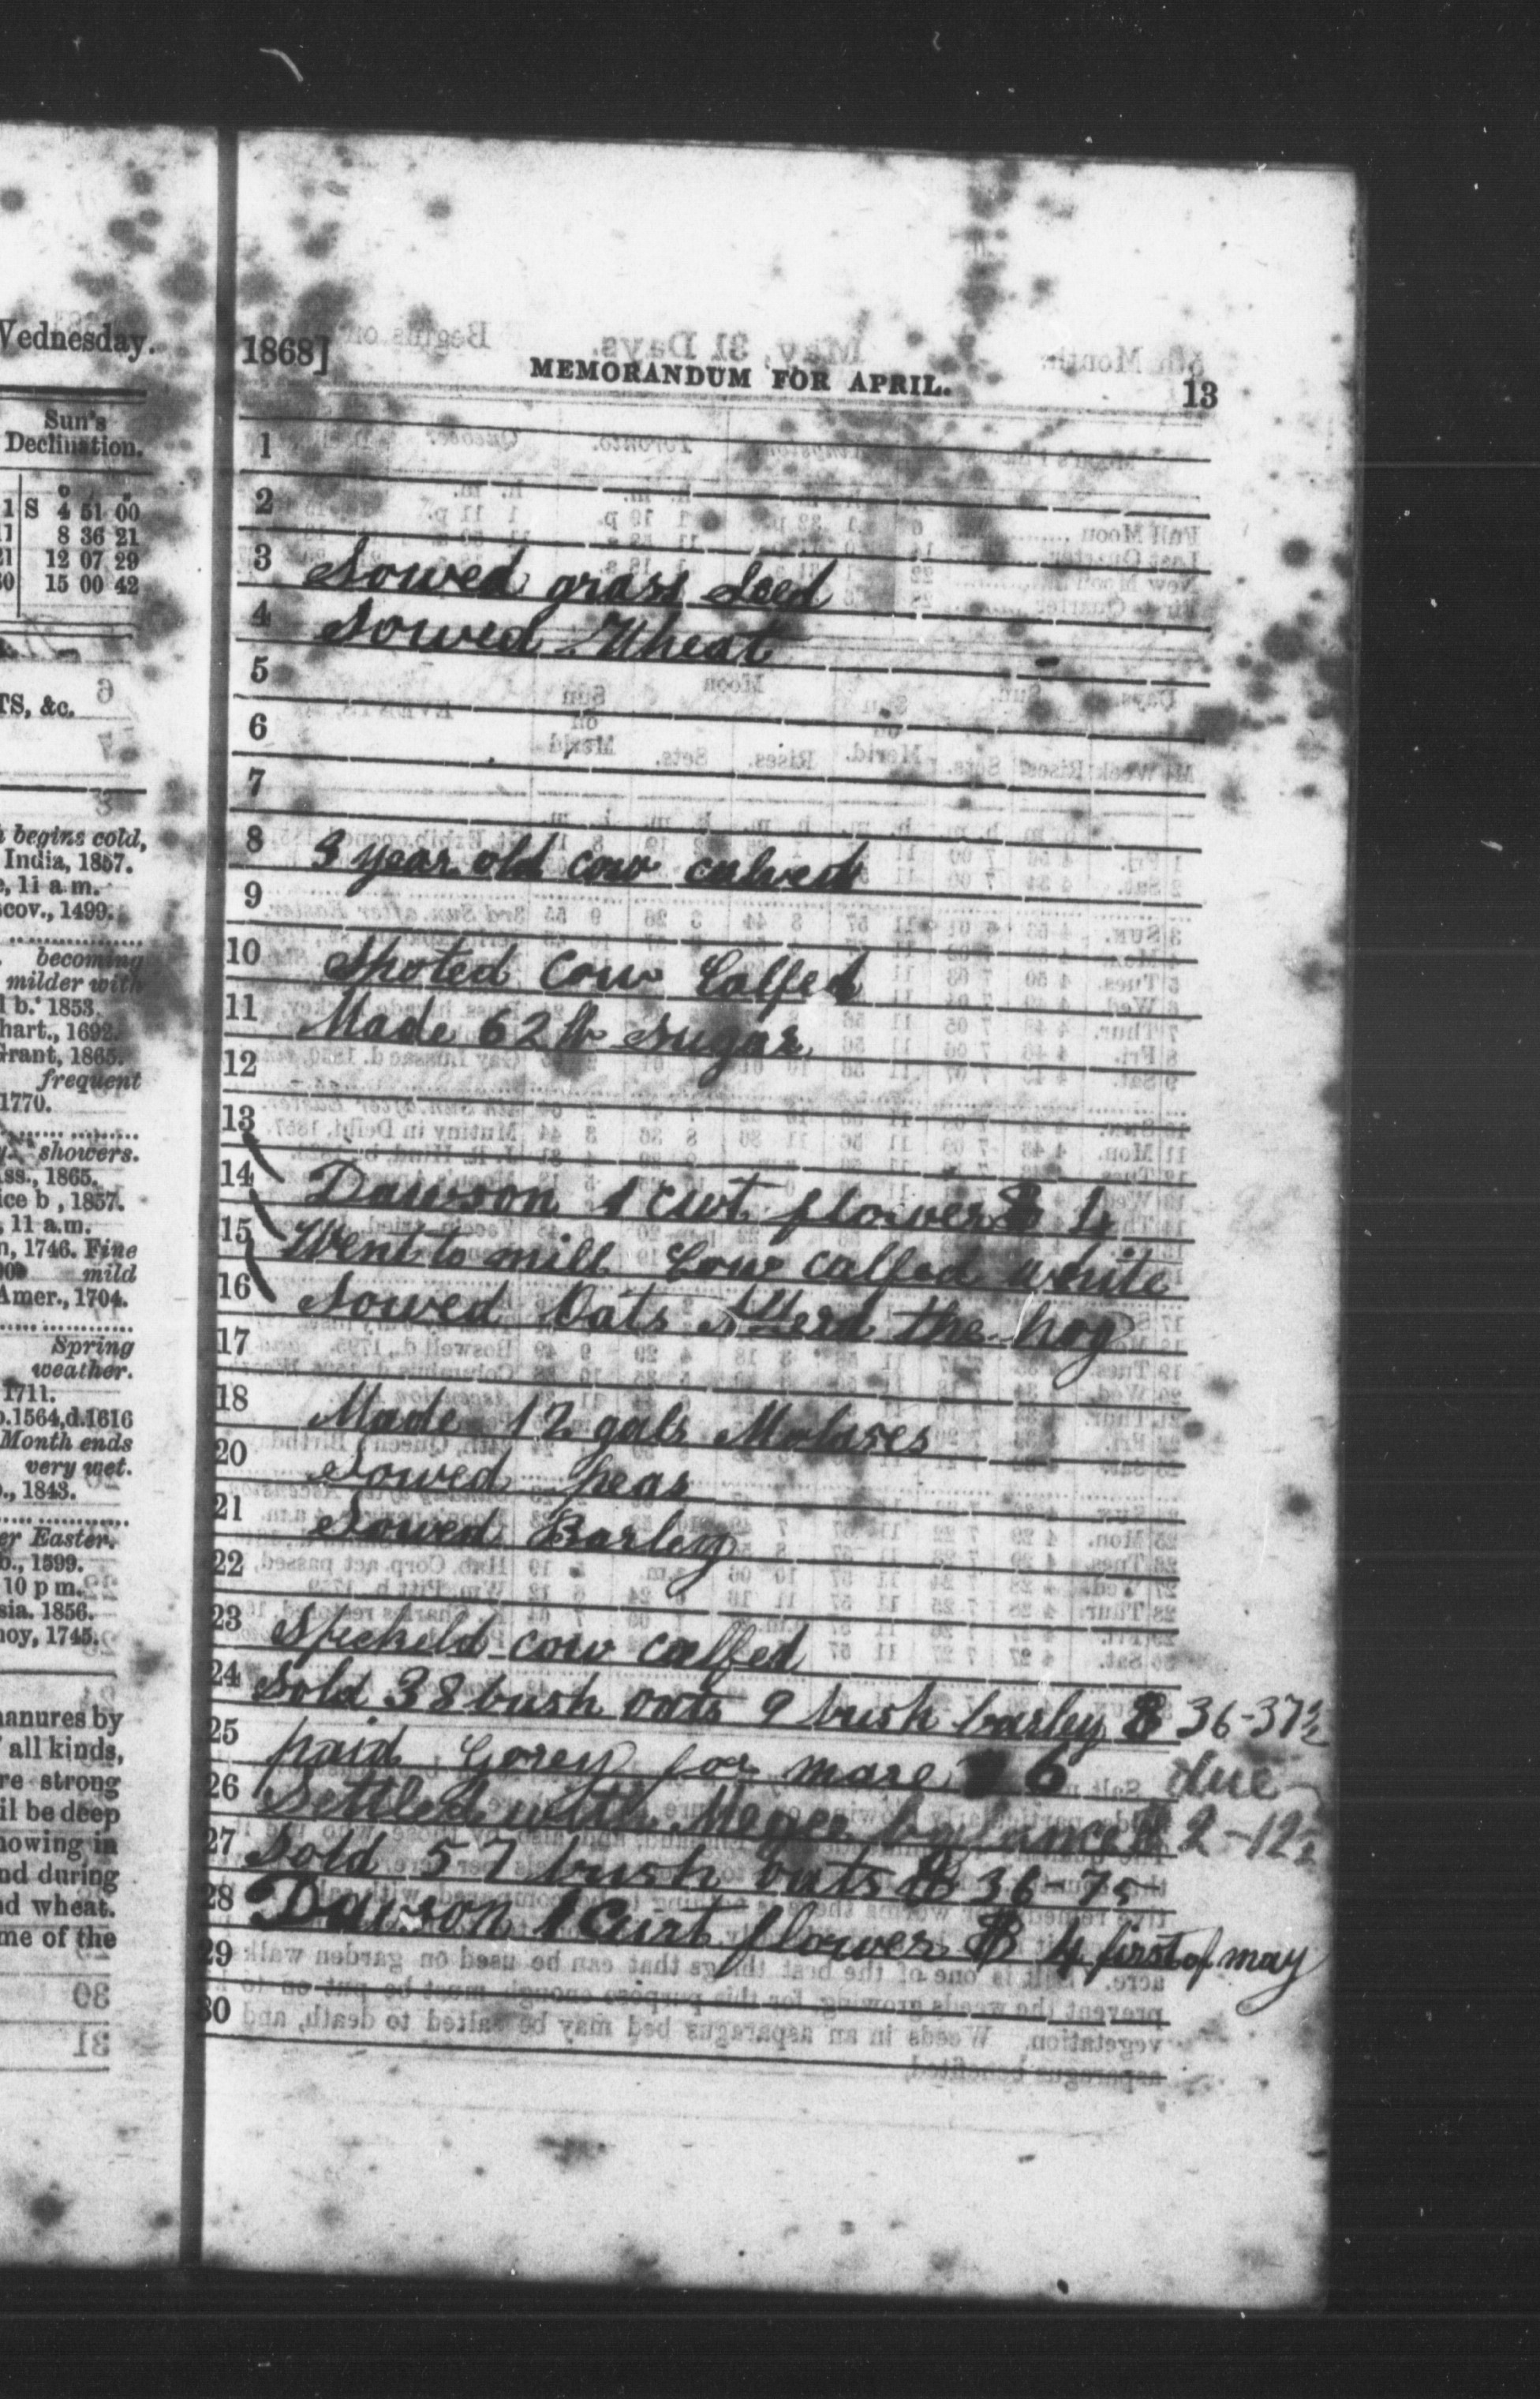 Wednesday.
Sun's
Declination.
1 S 4 51 00
11 8 36 21
21 12 07 29
30 15 00 42
TS, &c.
begins cold,
India, 1857.
11 a m.
cov., 1499.
becoming
milder with
b. 1853.
hart., 1692.
Grant, 1865.
frequent
1770.
showers.
ss., 1865.
ice b, 1857.
11 a.m.
n, 1746. Fine
mild
Amer., 1704.
Spring
weather.
1711.
b.1564,d.1616
Month ends
very wet.
1843.
er Easter.
b., 1599.
10 p m.
sia. 1856.
noy, 1745.
manures by
all kinds,
re strong
il be deep
nowing in
nd during
nd wheat.
me of the
1868] MEMORANDUM FOR APRIL. 13
1
2
3 Sowed grass Seed
4 Sowed Wheat
5
6
7
8 3 year old cow calved
9
10 Spoted Cow Calfed
11 Made 62 lb Sugar
12
13
14 Dawson 1 cwt flower $ 4
15 Went to mill Cow calfed white
16 Sowed Oats the hog
17
18 Made 12 gals Molases
20 Sowed peas
21 Sowed Barley
22
23 Speckeld cow calfed
24 Sold 38 bush oats 9 bush barley $ 36-37½
25 paid Gorey for mare $ 6 due
26 Settled with Megee ballance $ 2-12½
27 Sold 57 bush oats $ 36-75
28 Dawson 1 Curt flower $ 4 first of may
29
30